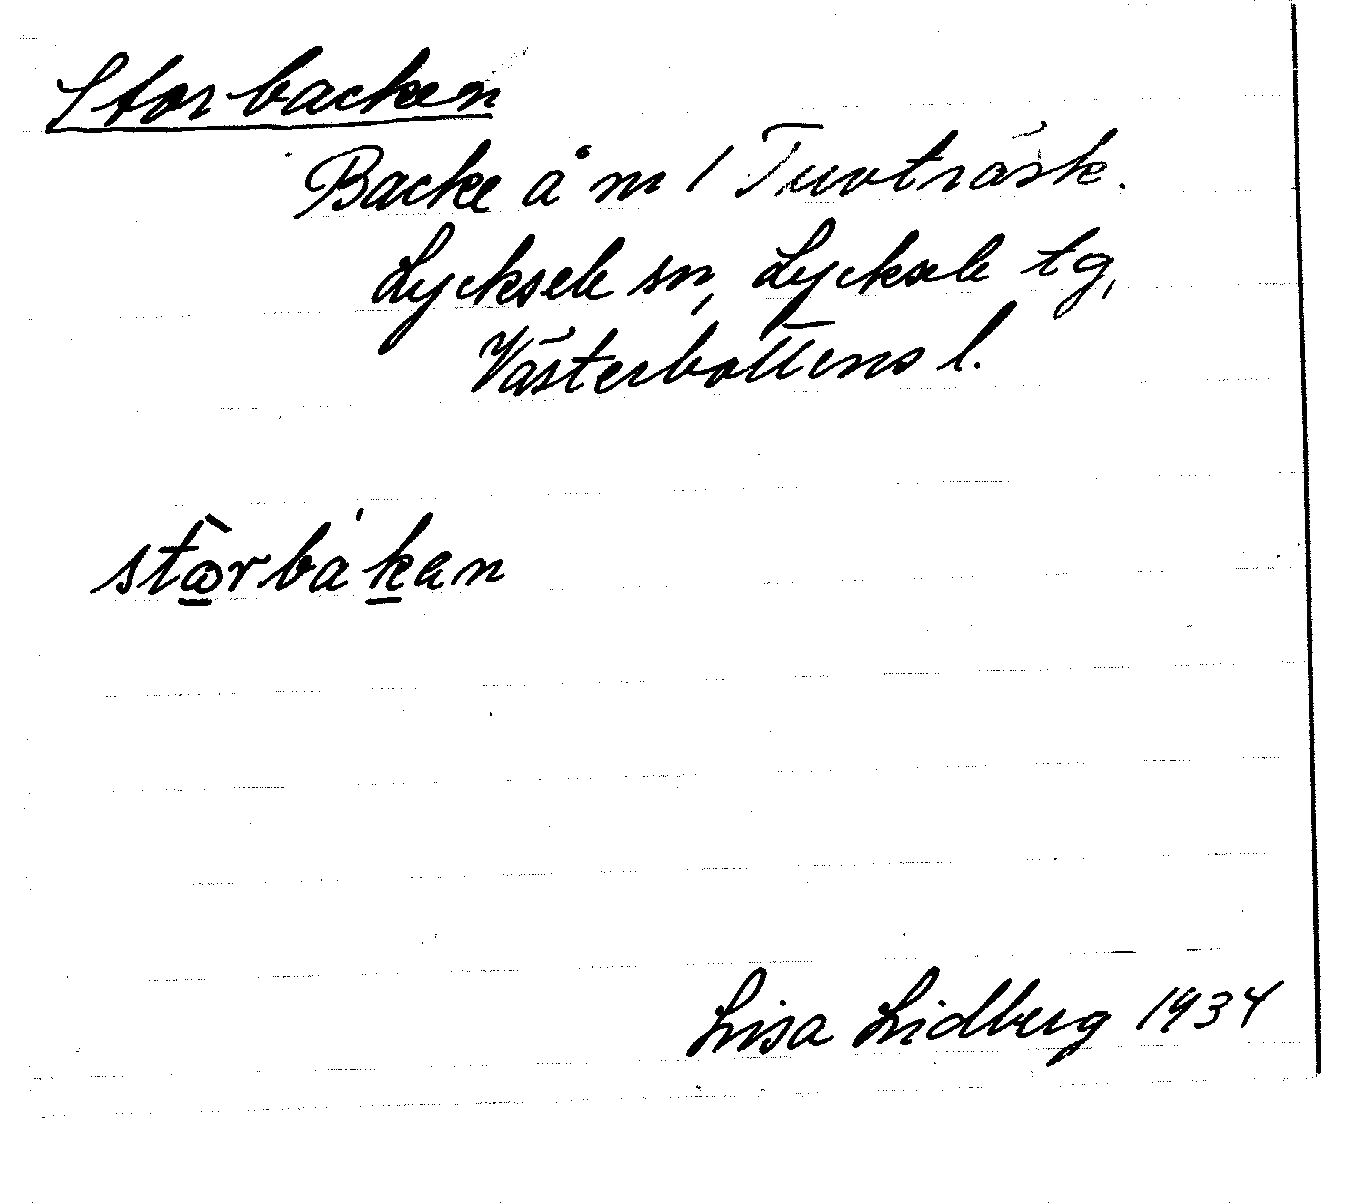 Storbacken
Backe å m / Tuvträsk.
Lycksele sn, Lycksele tg,
Västerbottens l.
stɷ̀rbákan
Lisa Lidberg 1934